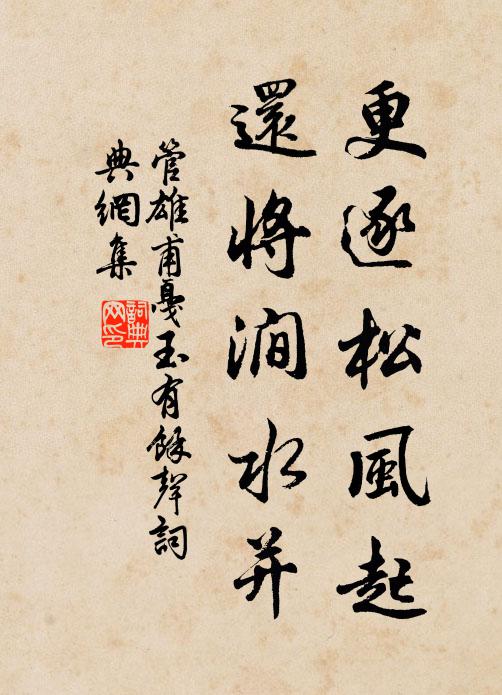 更逐松風起
還將澗水并
管雄甫戛玉有餘聲詞
典網集
詞典
网印